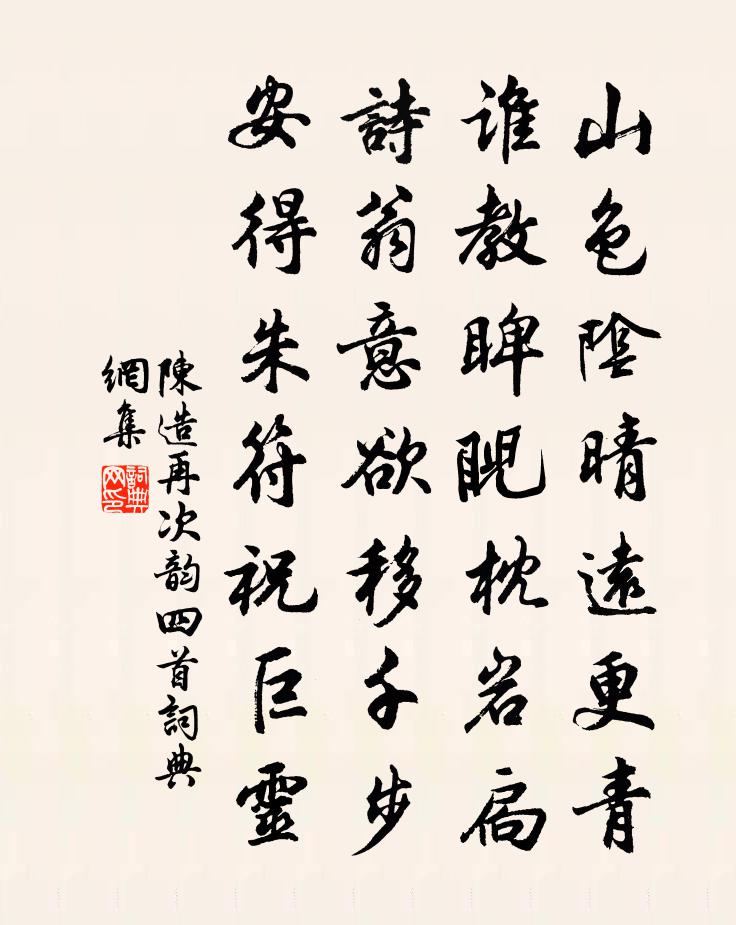 山色陰晴遠更青
谁教睥睨枕岩扃
詩翁意欲移千步
安得朱符祝巨靈
陳造再次韵四首詞典
網集
詞典
网印